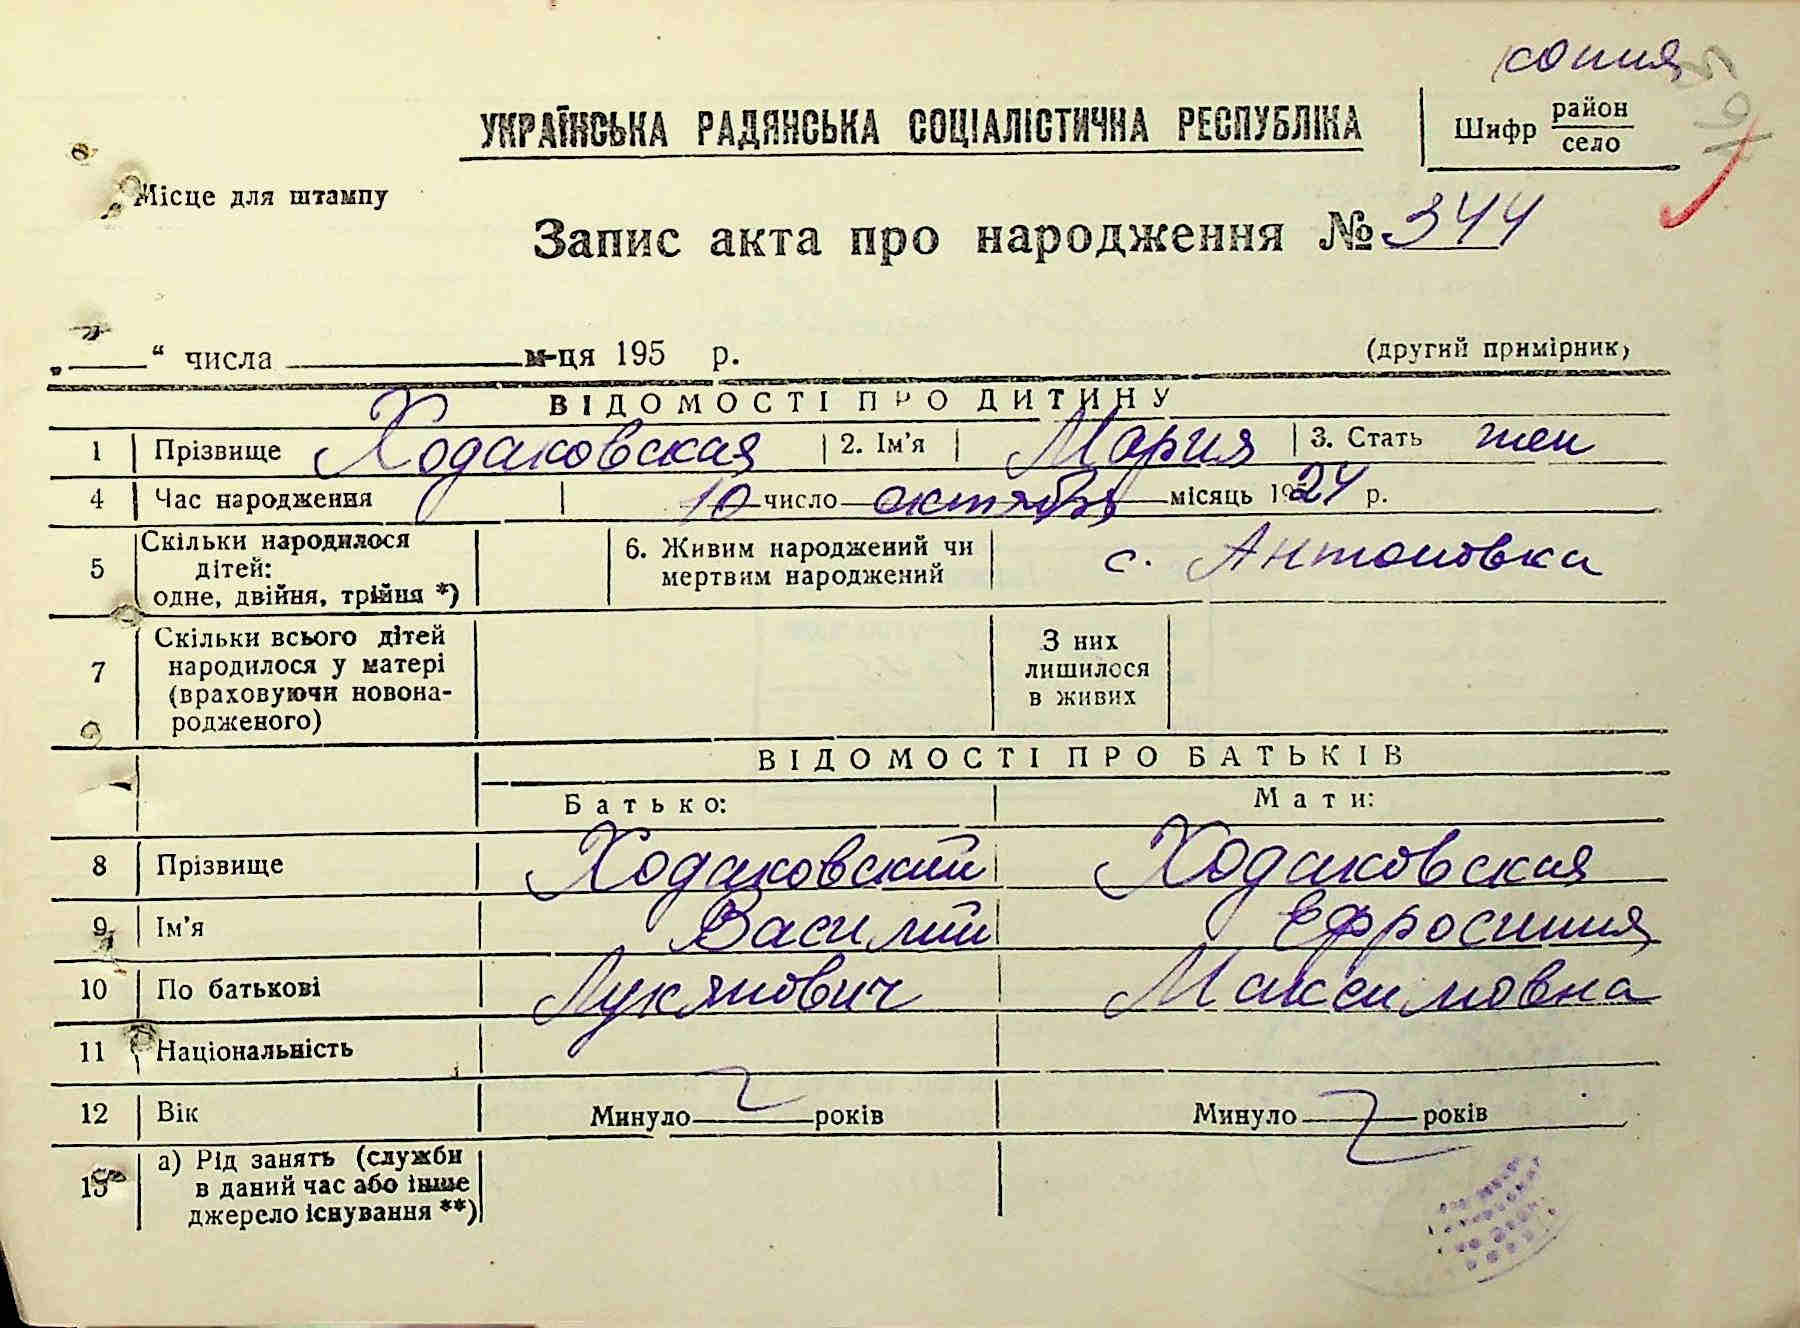 копия
УКРАЇНСЬКА РАДЯНСЬКА СОЦІАЛІСТИЧНА РЕСПУБЛІКА
Шифр район село
Місце для штампу
Запис акта про народження № 344
„ “ числа м-ця 195 р. (другий примірник)
ВІДОМОСТІ ПРО ДИТИНУ
1 Прізвище Ходаковская 2. Ім'я Мария 3. Стать жен
4 Час народження 10 число октября місяць 1924 р.
5 Скільки народилося дітей: одне, двійня, трійня *) 6. Живим народжений чи мертвим народжений с. Антоновка
7 Скільки всього дітей народилося у матері (враховуючи новонародженого) З них лишилося в живих
ВІДОМОСТІ ПРО БАТЬКІВ
Батько: Мати:
8 Прізвище Ходаковский Ходаковская
9 Ім'я Василий Ефросиния
10 По батькові Лукянович Максимовна
11 Національність
12 Вік Минуло років Минуло років
13 а) Рід занять (служби в даний час або інше джерело існування **)